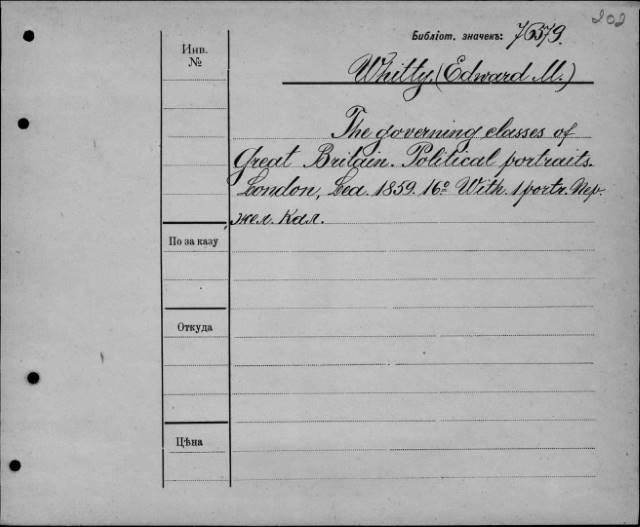 202
Библіот. значекъ: 76579.
Инв.
№
Whitty. (Edward M.)
The governing classes of
Great Britain. Political portraits.
London, Lea. 1859. 16º With 1 portr. Пер.
жел. Кал.
По заказу
Откуда
Цѣна